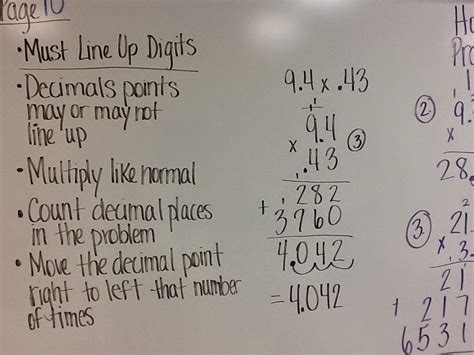 Page 10
• Must Line Up Digits
• Decimals points
may or may not
line up
• Multiply like normal
• Count decimal places
in the problem
• Move the decimal point
right to left that number
of times
9.4 x .43
1
9.4
x .43 ③
1282
+ 3760
4.042
= 4.042
Ho
Pro
② 9.
x
28.
③ 2
21.
x .3
21
+ 217
6531